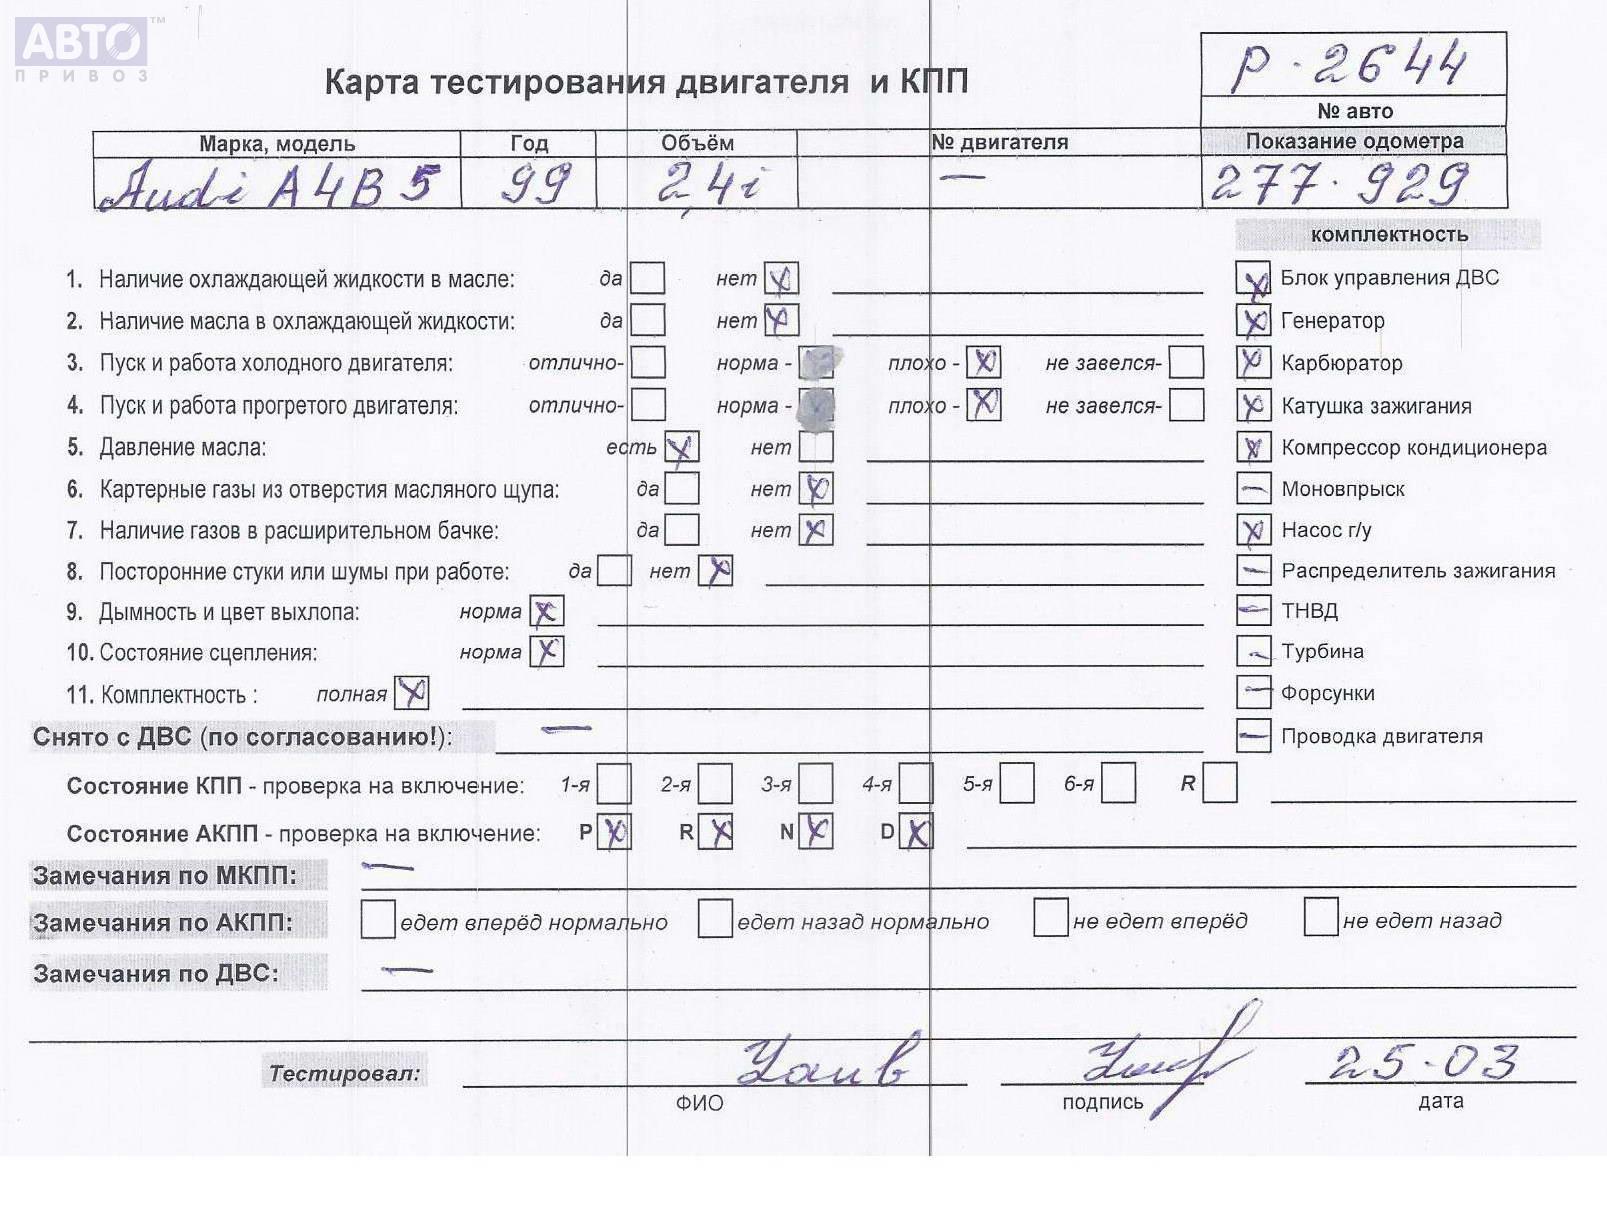 АВТО™
ПРИВОЗ
Карта тестирования двигателя и КПП
Р-2644
№ авто
Марка, модель Год Объём № двигателя Показание одометра
Audi A4B5 99 2,4i — 277.929
комплектность
1. Наличие охлаждающей жидкости в масле: да нет X X Блок управления ДВС
2. Наличие масла в охлаждающей жидкости: да нет X X Генератор
3. Пуск и работа холодного двигателя: отлично- норма - плохо - X не завелся- X Карбюратор
4. Пуск и работа прогретого двигателя: отлично- норма - плохо - X не завелся- X Катушка зажигания
5. Давление масла: есть X нет X Компрессор кондиционера
6. Картерные газы из отверстия масляного щупа: да нет X — Моновпрыск
7. Наличие газов в расширительном бачке: да нет X X Насос г/у
8. Посторонние стуки или шумы при работе: да нет X — Распределитель зажигания
9. Дымность и цвет выхлопа: норма X — ТНВД
10. Состояние сцепления: норма X — Турбина
11. Комплектность : полная X — Форсунки
Снято с ДВС (по согласованию!): — — Проводка двигателя
Состояние КПП - проверка на включение: 1-я 2-я 3-я 4-я 5-я 6-я R
Состояние АКПП - проверка на включение: P X R X N X D X
Замечания по МКПП: —
Замечания по АКПП: едет вперёд нормально едет назад нормально не едет вперёд не едет назад
Замечания по ДВС: —
Тестировал: 25-03
ФИО подпись дата